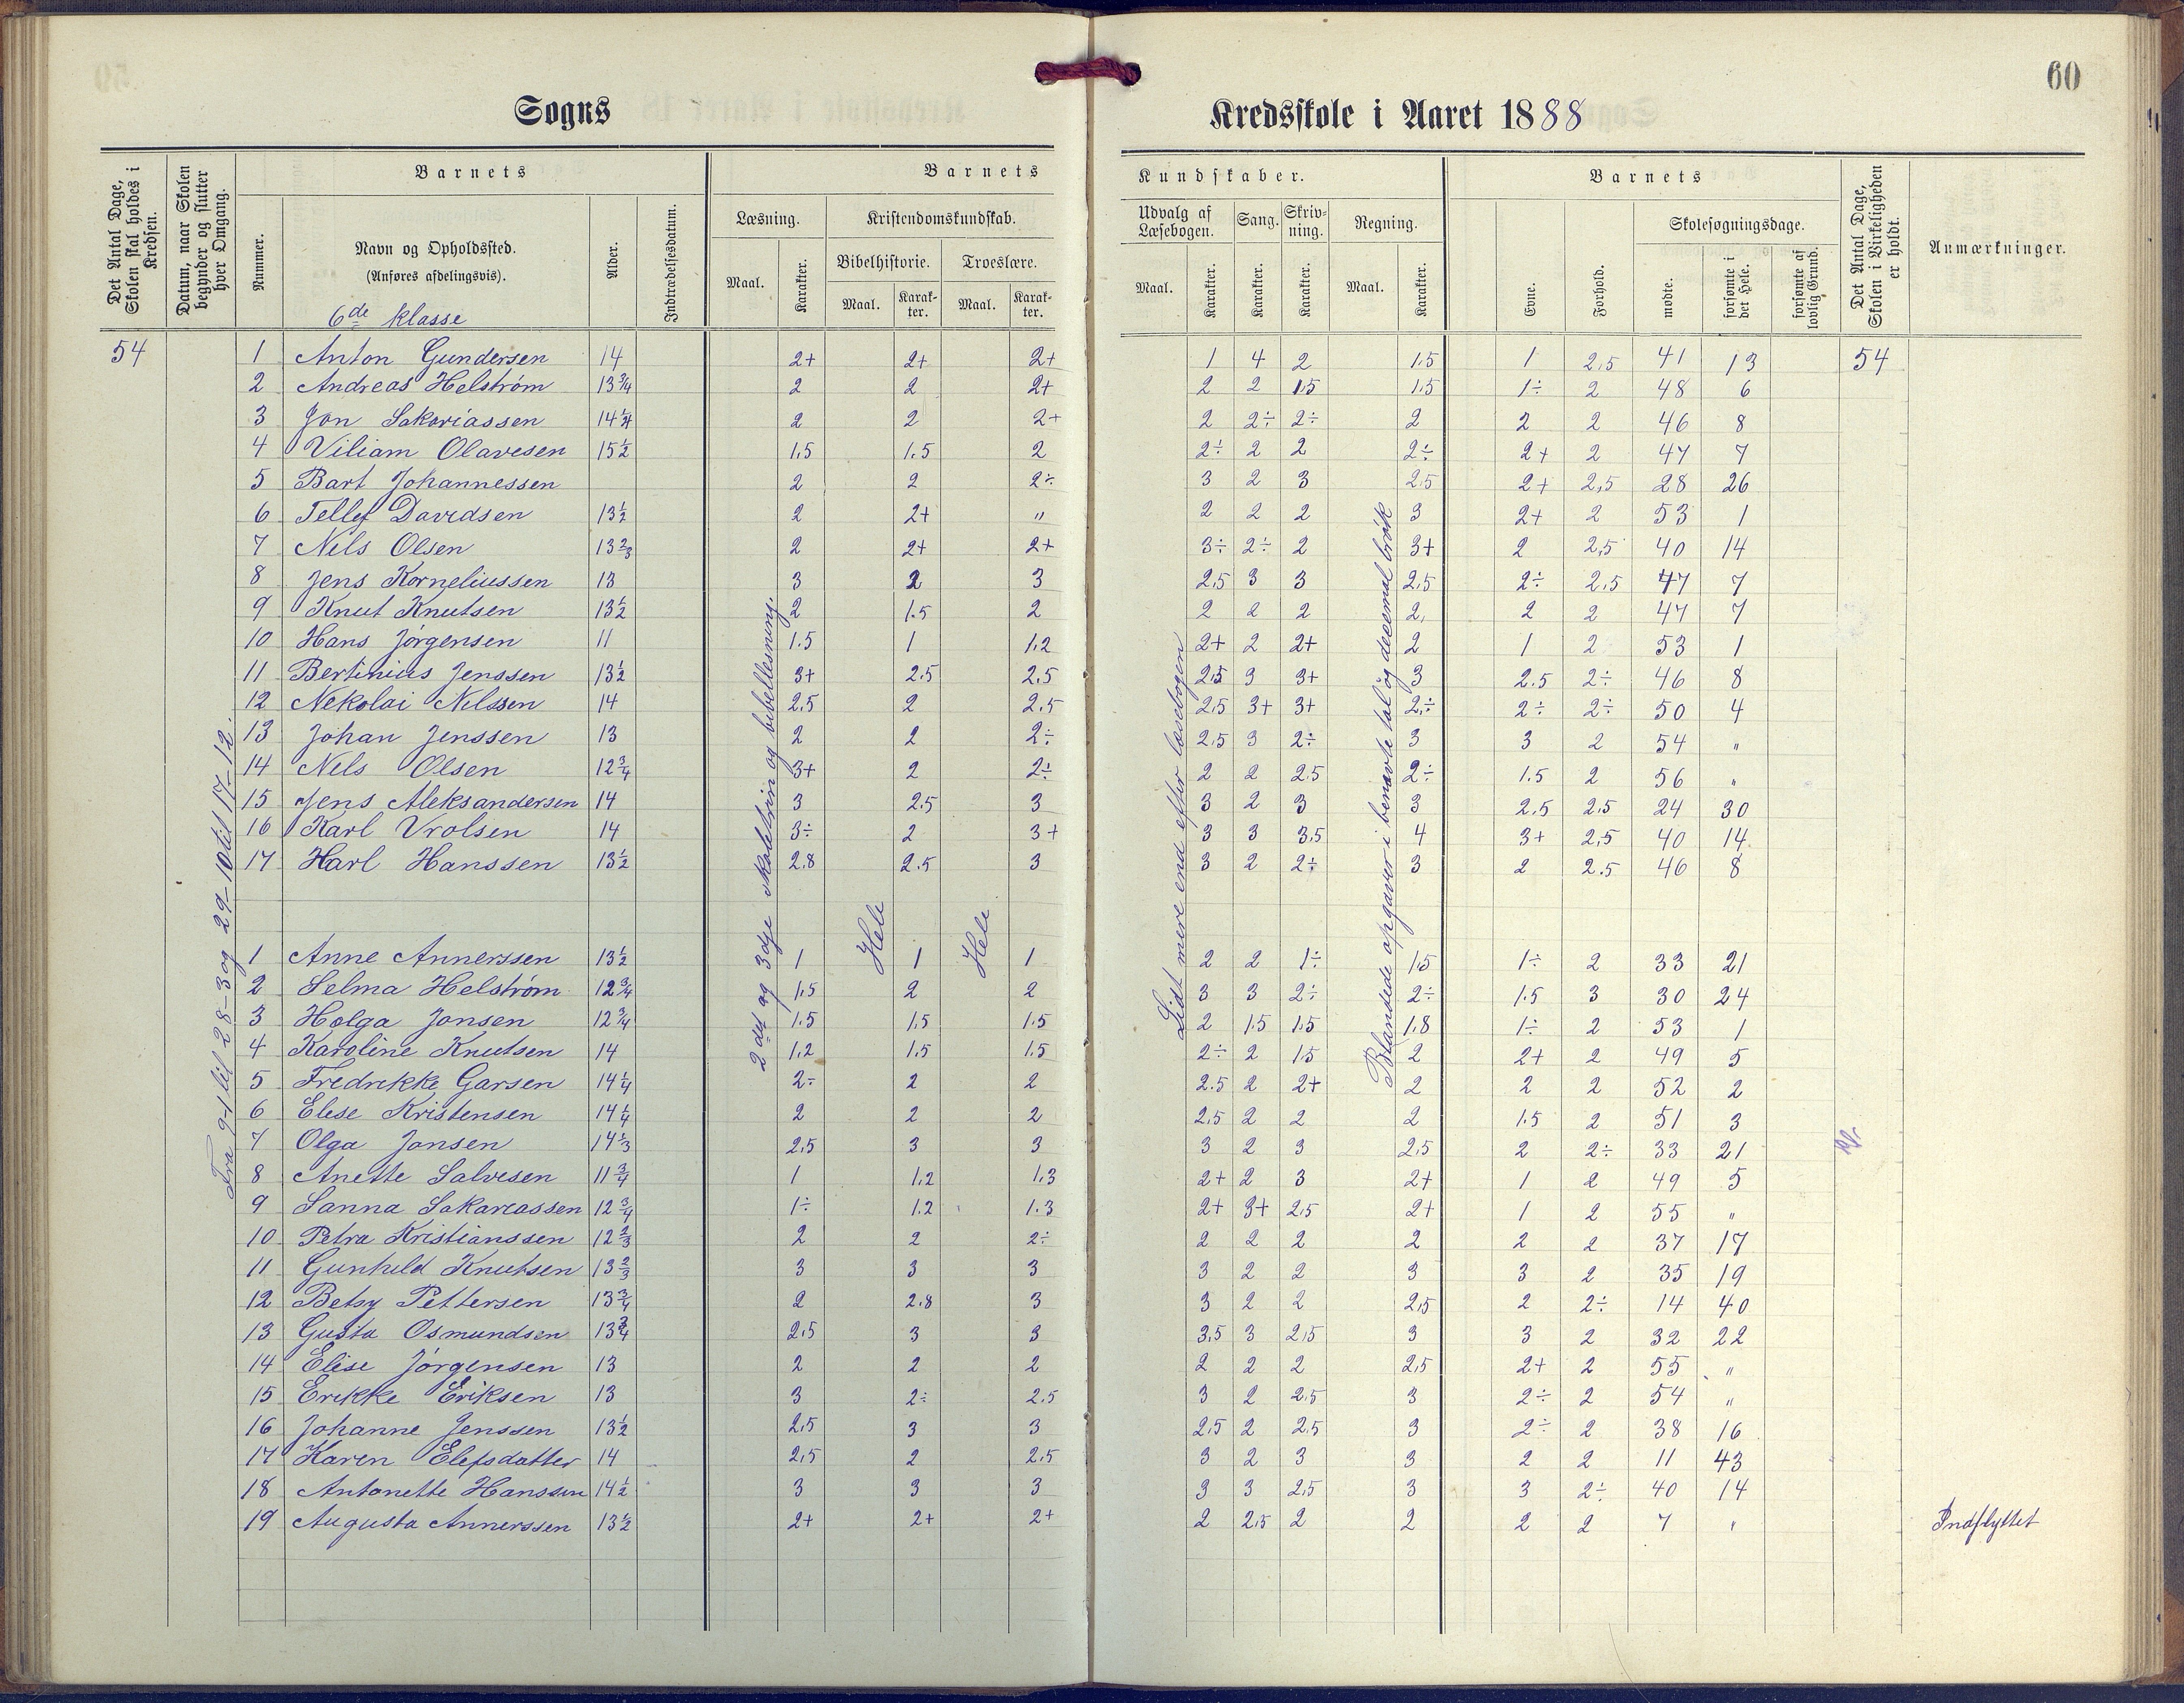 60
Sogns
Kredsskole i Aaret 1888
Det Antal Dage, Skolen skal holdes i Kredsen.
Datum, naar Skolen begynder og slutter hver Omgang.
Barnets
Nummer.
Navn og Opholdssted.
(Anføres afdelingsvis).
6de klasse
Alder.
Indtrædelsesdatum.
Barnets
Læsning.
Maal.
Karakter.
Kristendomskundskab.
Bibelhistorie.
Maal.
Karakter.
Troeslære.
Maal.
Karakter.
Kundskaber.
Udvalg af Læsebogen.
Maal.
Karakter.
Sang.
Karakter.
Skrivning.
Karakter.
Regning.
Maal.
Karakter.
Barnets
Evne.
Forhold.
Skolesøgningsdage.
mødte.
forsømte i det Hele.
forsømte af lovlig Grund.
Det Antal Dage, Skolen i Virkeligheden er holdt.
Anmærkninger.
54 1 Anton Gundersen 14 2+ 2+ 2+ 1 4 2 1.5 1 2,5 41 13 54
2 Andreas Helstrøm 13 3/4 2 2 2+ 2 2 1.5 1.5 1÷ 2 48 6
3 Jon Sakariassen 14 1/4 2 2 2+ 2 2÷ 2÷ 2 2 2 46 8
4 Viliam Olavesen 15 1/2 1,5 1.5 2 2÷ 2 2 2÷ 2+ 2 47 7
5 Bart Johannessen 2 2 2÷ 3 2 3 2.5 2+ 2,5 28 26
6 Tellef Davidsen 13 1/2 2 2+ " 2 2 2 3 2+ 2 53 1
7 Nils Olsen 13 2/3 2 2+ 2+ 3÷ 2÷ 2 3+ 2 2,5 40 14
8 Jens Korneliussen 13 3 2 3 2,5 3 3 2,5 2÷ 2,5 47 7
9 Knut Knutsen 13 1/2 2 1.5 2 2 2 2 2, 2 2 47 7
10 Hans Jørgensen 11 1.5 1 1,2 2+ 2 2+ 2 1 2 53 1
11 Bertinius Jenssen 13 1/2 3+ 2.5 2,5 2,5 3 3+ 3 2.5 2÷ 46 8
12 Nekolai Nilssen 14 2,5 2 2.5 2,5 3+ 3+ 2,÷ 2÷ 2÷ 50 4
13 Johan Jenssen 13 2 2 2÷ 2,5 3 2÷ 3 3 2 54 "
14 Nels Olsen 12 3/4 3+ 2 2÷ 2 2 2.5 2÷ 1.5 2 56 "
15 Jens Aleksandersen 14 3 2.5 3 3 2 3 3 2.5 2,5 24 30
16 Karl Vrolsen 14 3÷ 2 3+ 3 3 3,5 4 3+ 2,5 40 14
17 Harl Hanssen 13 1/2 2.8 2.5 3 3 2 2÷ 3 2 2.5 46 8
1 Anne Annerssen 13 1/2 1 1 1 2 2 1÷ 1,5 1÷ 2 33 21
2 Selma Helstrøm 12 3/4 1,5 2 2 3 3 2÷ 2÷ 1.5 3 30 24
3 Holga Jonsen 12 3/4 1.5 1,5 1.5 2 1.5 1.5 1,8 1÷ 2 53 1
4 Karoline Knutsen 14 1,2 1,5 1.5 2÷ 2 1.5 2 2+ 2 49 5
5 Fredrikke Garsen 14 1/4 2÷ 2 2 2.5 2 2+ 2 2 2 52 2
6 Elese Kristensen 14 1/4 2 2 2 2,5 2 2 2 1.5 2 51 3
7 Olga Jonsen 14 1/3 2,5 3 3 3 2 3 2,5 2 2÷ 33 21
8 Anette Salvesen 11 3/4 1 1,2 1,3 2+ 2 3 2+ 1 2 49 5
9 Sanna Sakariassen 12 3/4 1÷ 1.2 1.3 2+ 3+ 2,5 2+ 1 2 55 "
10 Petra Kristianssen 12 2/3 2 2 2÷ 2 2 2 2 2 2 37 17
11 Gunhild Knutsen 13 2/3 3 3 3 3 2 2 3 3 2 35 19
12 Betsy Pettersen 13 3/4 2 2.8 3 3 2 2 2,5 2 2÷ 14 40
13 Gusta Osmundsen 13 3/4 2,5 3 3 3,5 3 2,5 3 3 2 32 22
14 Elise Jørgensen 13 2 2 2 2 2 2 2,5 2+ 2 55 "
15 Erikke Eriksen 13 3 2÷ 2.5 3 2 2,5 3 2÷ 2 54 "
16 Johanne Jenssen 13 1/2 2,5 3 3 2,5 2 2.5 3 2÷ 2 38 16
17 Karen Elefsdatter 14 2,5 2 2,5 3 2 3 3 2 2 11 43
18 Antonette Hanssen 14 1/2 3 3 3 3 3 2,5 3 3 2÷ 40 14
19 Augusta Annerssen 13 1/2 2+ 2+ 2+ 2 2,5 2 2 2 2 7 " Indflyttet
Fra 9-1 til 28-3 og 29-10 til 17-12.
2det og 3dje skoletrin og bibellesning.
Hele
Hele
Lidt mere end efter læsebogen
Blandede opgaver i benævte tal og decemal brøk